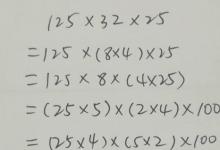 125×32×25
=125×(8×4)×25
=125×8×(4×25)
=(25×5)×(2×4)×100
=(25×4)×(5×2)×100